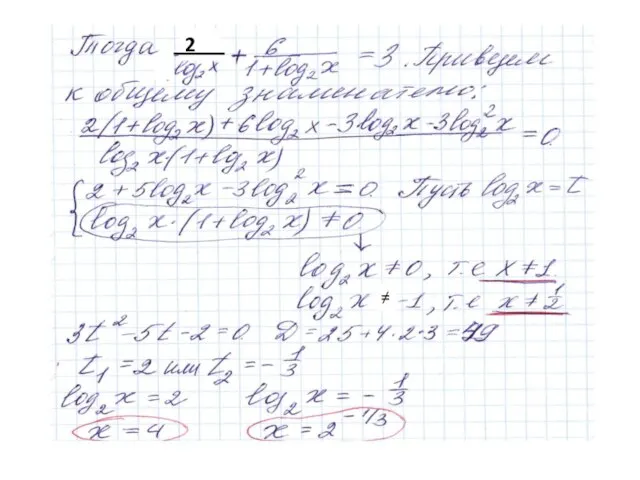 Тогда 2/log₂x + 6/(1+log₂x) = 3. Приведем
к общему знаменателю:
(2(1+log₂x) + 6log₂x - 3log₂x - 3log₂²x)/(log₂x·(1+log₂x)) = 0.
{ 2 + 5log₂x - 3log₂²x = 0. Пусть log₂x = t
log₂x·(1+log₂x) ≠ 0
↓
log₂x ≠ 0, т.е. x ≠ 1.
log₂x ≠ -1, т.е. x ≠ 1/2
3t² - 5t - 2 = 0. D = 25 + 4·2·3 = 49
t₁ = 2 или t₂ = - 1/3
log₂x = 2 log₂x = - 1/3
x = 4 x = 2^(-1/3)